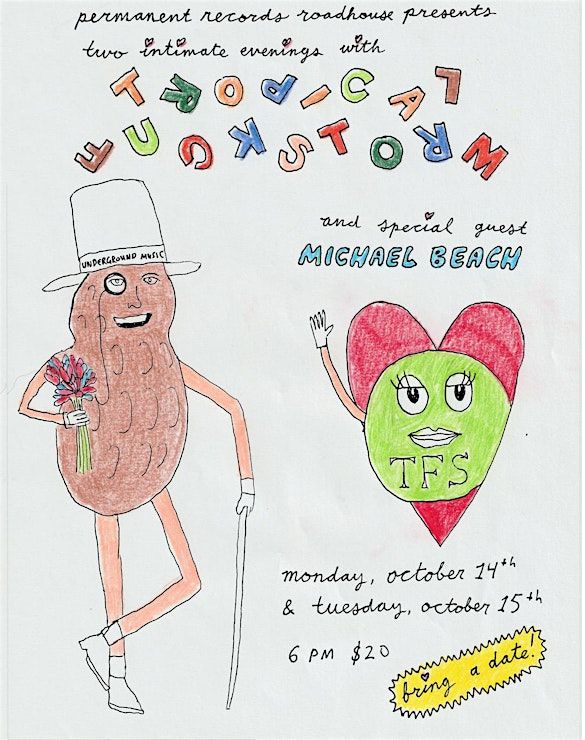 permanent records roadhouse presents
two intimate evenings with
TROPICAL
FUCKSTORM
and special guest
MICHAEL BEACH
UNDERGROUND MUSIC
TFS
monday, october 14th
& tuesday, october 15th
6 PM $20
bring a date!